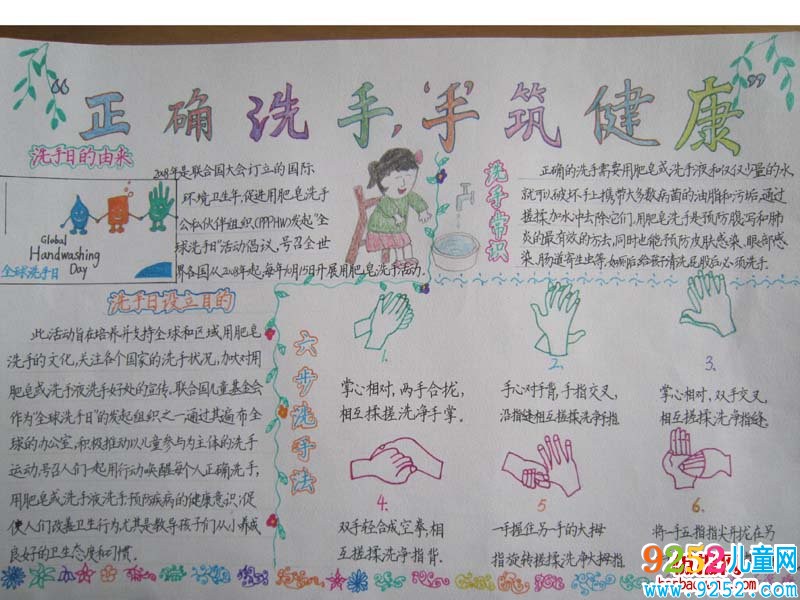 “正确洗手,‘手’筑健康”
洗手日的由来
2008年是联合国大会订立的国际
环境卫生年,促进用肥皂洗手
公私伙伴组织(PPPHW)发起“全
球洗手日”活动倡议,号召全世
界各国从2008年起,每年10月15日开展用肥皂洗手活动.
Global
Handwashing
Day
全球洗手日
洗手常识
正确的洗手需要用肥皂或洗手液和仅仅少量的水,
就可以破坏手上携带大多数病菌的油脂和污垢,通过
搓揉加水冲去除它们.用肥皂洗手是预防腹泻和肺
炎的最有效的方法,同时也能预防皮肤感染、眼部感
染、肠道寄生虫等,如厕后给孩子清洗屁股后必须洗手.
洗手日设立目的
此活动旨在培养并支持全球和区域用肥皂
洗手的文化,关注各个国家的洗手状况,加大对用
肥皂或洗手液洗手好处的宣传.联合国儿童基金会
作为“全球洗手日”的发起组织之一通过其遍布全
球的办公室,积极推动以儿童参与为主体的洗手
运动,号召人们一起用行动唤醒每个人正确洗手,
用肥皂或洗手液洗手预防疾病的健康意识;促
使人们改善卫生行为尤其是教导孩子们从小养成
良好的卫生态度和习惯.
六步洗手法
1.
掌心相对,两手合拢,
相互揉搓洗净手掌.
2.
手心对手背,手指交叉,
沿指缝相互搓揉洗净手指
3.
掌心相对,双手交叉,
相互揉搓,洗净指缝.
4.
双手轻合成空拳,相
互搓揉洗净指背.
5
一手握住另一手的大拇
指旋转搓揉洗净大拇指
6.
将一手五指指尖并拢在另
9252儿童网
www.9252.com